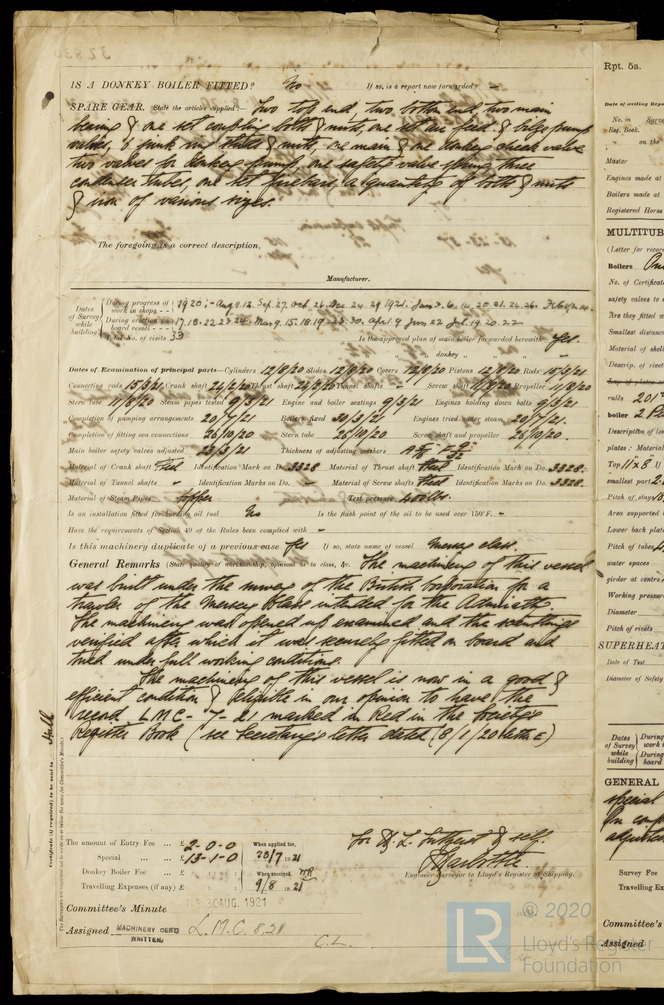 IS A DONKEY BOILER FITTED? No If so, is a report now forwarded? -
SPARE GEAR. State the articles supplied:- Two top end, two bottom end two main
bearing & one set coupling bolts & nuts, one set air feed & bilge pump
valves, 6 junk ring studs & nuts, one main & one donkey check valve
two valves for donkey pump, one safety valve spring three
condenser tubes, one set firebars, a quantity of bolts & nuts
& iron of various sizes.
The foregoing is a correct description,
Manufacturer.
Dates of Survey while building
During progress of work in shops - - 1920:- Aug 9. 12. Sep. 27. Oct. 26. Dec 24. 29. 1921. Jan 3. 6. 14. 20. 21. 24. 26. Feb
During erection on board vessel - - - 17. 18. 22 23 24. Mar 9. 15. 18. 19. 30. April 9 Jun 22 Jul 19. 20. 22
Total No. of visits 33 Is the approved plan of main boiler forwarded herewith Yes.
" " " donkey " " " "
Dates of Examination of principal parts—Cylinders 12/8/20 Slides 12/8/20 Covers 12/8/20 Pistons 12/8/20 Rods 15/3/21
Connecting rods 15/3/21 Crank shaft 24/2/20 Thrust shaft 24/2/20 Tunnel shafts - Screw shaft 11/8/20 Propeller 11/8/20
Stern tube 11/8/20 Steam pipes tested 9/3/21 Engine and boiler seatings 9/3/21 Engines holding down bolts 9/3/21
Completion of pumping arrangements 20/7/21 Boilers fixed 30/3/21 Engines tried under steam 20/7/21.
Completion of fitting sea connections 26/10/20 Stern tube 26/10/20 Screw shaft and propeller 26/10/20.
Main boiler safety valves adjusted 22/3/21 Thickness of adjusting washers
Material of Crank shaft Steel Identification Mark on Do. 3328 Material of Thrust shaft Steel Identification Mark on Do. 3328.
Material of Tunnel shafts " Identification Marks on Do. " Material of Screw shafts Steel Identification Marks on Do. 3328.
Material of Steam Pipes Copper Test pressure 400 lbs.
Is an installation fitted for burning oil fuel No Is the flash point of the oil to be used over 150°F. -
Have the requirements of Section 49 of the Rules been complied with -
Is this machinery duplicate of a previous case Yes If so, state name of vessel Mersey class.
General Remarks (State quality of workmanship, opinions as to class, &c. The machinery of this vessel
was built under the survey of the British Corporation for a
trawler of the Mersey Class intended for the Admiralty.
The machinery was opened up examined and the scantlings
verified after which it was securely fitted on board and
tried under full working conditions.
The machinery of this vessel is now in a good &
efficient condition & eligible in our opinion to have the
record L.M.C- 7- 21, marked in Red in the Society's
Register Book (see Secretary's letter dated (8/1/20 letter E)
Certificate (if required) to be sent to Hull
The amount of Entry Fee ... £ 2-0-0 When applied for,
Special ... ... £ 13-1-0 23/7 1921
Donkey Boiler Fee ... £ : : When received,
Travelling Expenses (if any) £ : : 9/8 1921
Engineer Surveyor to Lloyd's Register of Shipping.
Committee's Minute 30 AUG. 1921
Assigned MACHINERY CERTD WRITTEN. L.M.C. 8,21
C.L.
© 2020
LR Lloyd's Register
Foundation
Rpt. 5a.
Date of writing Repo
No. in Surve
Reg. Book.
on the
Master
Engines made at
Boilers made at
Registered Horse
MULTITUB
(Letter for recor
Boilers
No. of Certificate
safety valves to e
Are they fitted w
Smallest distance
Material of shell
Descrip. of rivet
rults
boiler
Description of lon
plates: Material
Top
smallest part
Pitch of stays
Area supported
Lower back plate
Pitch of tubes
water spaces
girder at centre
Working pressure
Diameter
Pitch of rivets
SUPERHEAT
Date of Test
Diameter of Safety
Dates of Survey while building
During work i
During board
GENERAL
special
Survey Fee
Travelling Ex
Committee's
Assigned